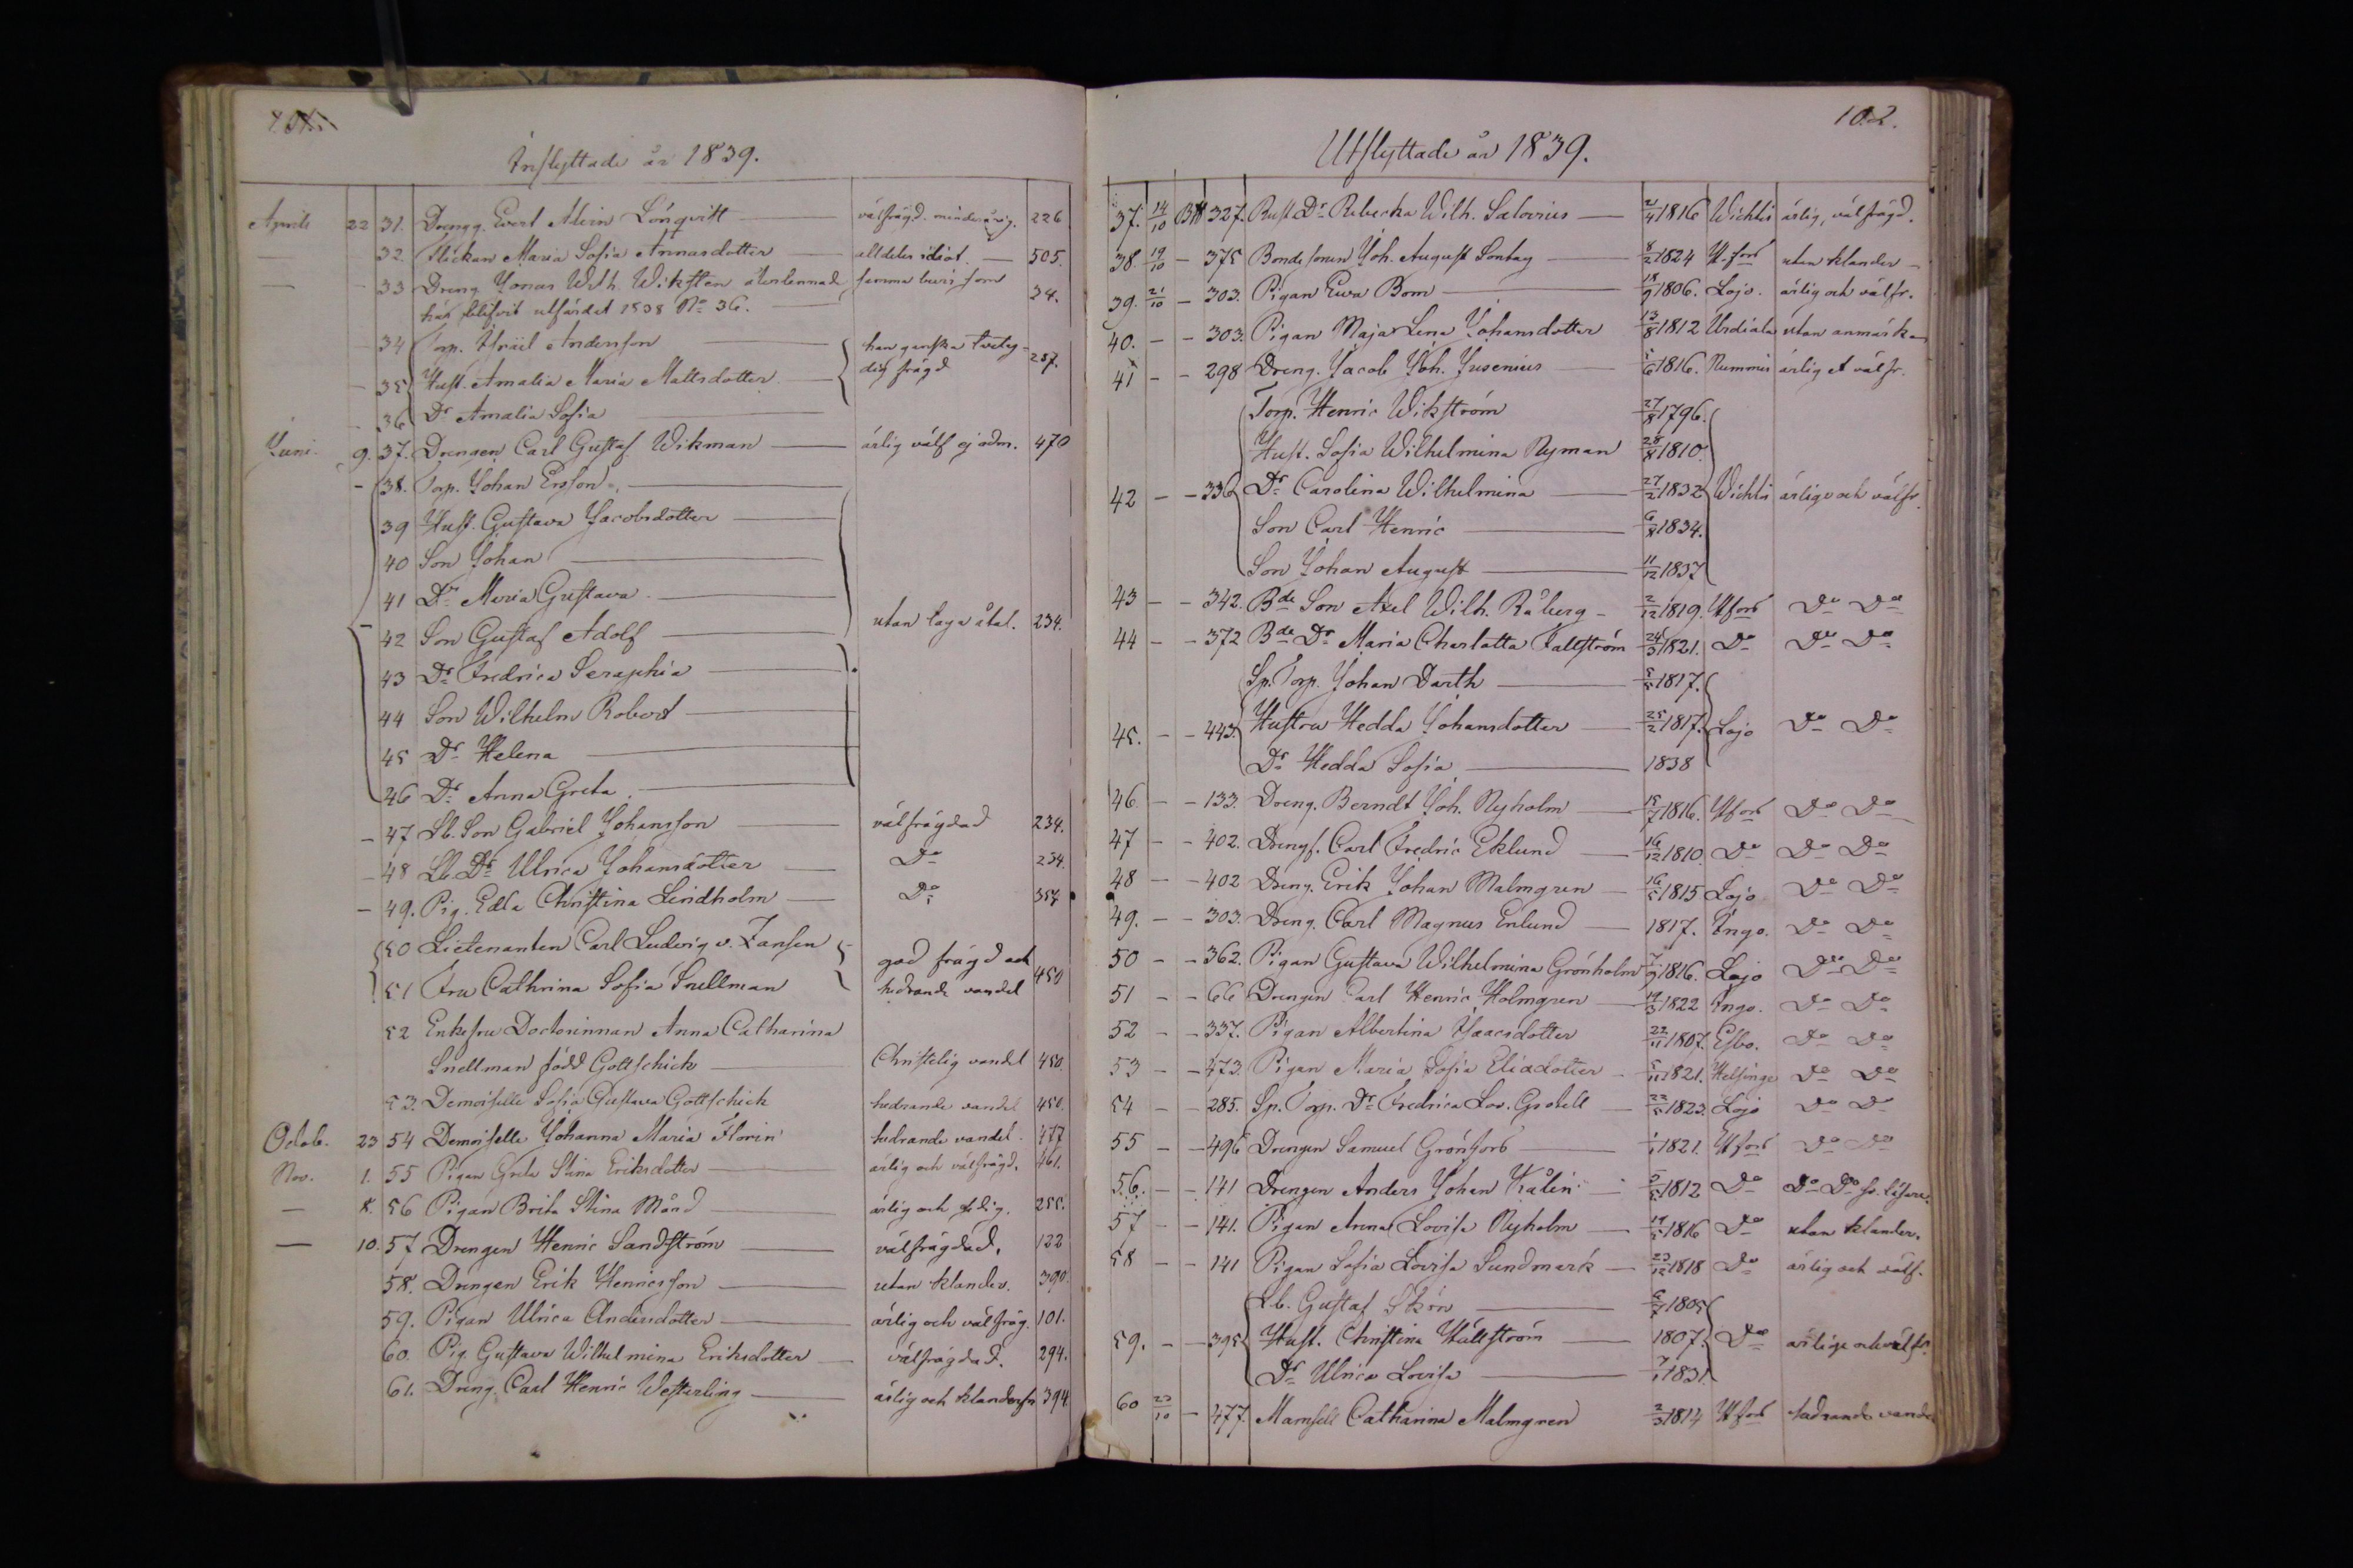 Inflyttade år 1839.
Aprill 22 31. Drengg. Evert Alrin Lönqvist — välfrägd. minderårig. 226
— 32. Flickan Maria Sofia Annasdotter — alldeles idiot. — 505.
— - 33 Dreng Jonas Wilh. Wiksten återlemnade samma bevis som 34.
här blifvit utfärdat 1838 No 36.
- 34 Torp. Israël Andersson — han ganska tvetydig frägd 287.
- 35 Hust. Amalia Maria Mattsdotter —
- 36 Dr Amalia Sofia —
Juni. 9. 37. Drengen Carl Gustaf Wikman — ärlig välf ej adm. 470
- 38. Torp. Johan Ersson —
39 Hust. Gustava Jacobsdotter —
40 Son Johan —
41 Dr Maria Gustava —
- 42 Son Gustaf Adolf — utan laga åtal. 234.
43 Dr Fredrica Seraphia —
44 Son Wilhelm Robert —
45 Dr Helena —
46 Dr Anna Greta. —
- 47 Sb. Son Gabriel Johansson — välfrägdad 234.
- 48 Sb. Dr Ulrica Johansdotter — Do 234.
- 49. Pig. Edla Christina Lindholm — Do 357
50 Lietenanten Carl Ludvig v. Zansen god frägd och
51 Fru Cathrina Sofia Snellman hedrande vandel 450
52 Enkefru Doctorinnan Anna Catharina
Snellman född Gottschick — Christelig vandel 450.
53. Demoiselle Sofia Gustava Gottschick hedrande vandel 450.
Octob. 23 54 Demoiselle Johanna Maria Florin hedrande vandel. 477
Nov. 1. 55 Pigan Greta Stina Eriksdotter — ärlig och välfrägd. 461.
— 8. 56 Pigan Brita Stina Månd — ärlig och fldig. 255.
— 10. 57 Drengen Henric Sandström — välfrägdad. 122
58. Drengen Erik Henricsson — utan klander. 390.
59. Pigan Ulrica Andersdotter — ärlig och välfräg. 101.
60. Pig. Gustava Wilhelmina Eriksdotter — välfrägdad. 294.
61. Dreng. Carl Henric Westerling — ärlig och klanderfri 394.
102.
Utflyttade år 1839.
37. 14/10 327. Rust. Dr Rebecka Wilh. Salovius — 2/4 1816 Wichtis ärlig, välfrägd.
38. 19/10 - 375 Bondesonen Joh. August Sontag — 8/2 1824 Utford utan klander -
39. 21/10 - 303. Pigan Eva Bom — 18/9 1806. Lojo. ärlig och välfr.
40. - - 303. Pigan Maja Lena Johansdotter 13/8 1812 Urdiala utan anmärkn
41 - - 298 Dreng. Jacob Joh. Jusenius — 5/6 1816. Nummis ärlig et välfr.
Torp. Henric Wikström 27/8 1796.
Hust. Sofia Wilhelmina Nyman 28/8 1810.
42 - - 336 Dr Carolina Wilhelmina — 27/2 1832 Wichtis ärliga och välfr.
Son Carl Henric — 6/8 1834.
Son Johan August — 11/12 1837
43 - - 342. Bde Son Axel Wilh. Råberg - 2/12 1819. Utford Do Do
44 - - 372 Bde Dr Maria Charlotta Fallström 24/3 1821. Do Do Do
Sp. Torp. Johan Darth — 5/5 1817.
45. - - 443. Hustru Hedda Johansdotter — 25/2 1817. Lojo Do Do
Dr Hedda Sofia — 1838
46 - - 133. Dreng. Berndt Joh. Nyholm — 15/7 1816. Utford Do Do
47 - - 402. Drengs. Carl Fredric Eklund — 16/12 1810. Do Do Do
48 - - 402 Dreng. Erik Johan Malmgren — 16/5 1815 Lojo Do Do
49. - - 303. Dreng. Carl Magnus Enlund — 1817. Ingo. Do Do
50 - - 362. Pigan Gustava Wilhelmina Grönholm 7/9 1816. Lojo Do Do
51 - - 66 Drengen Carl Henric Holmgren — 19/3 1822 Ingo. Do Do
52 - - 337. Pigan Albertina Isaacsdotter 22/11 1807. Esbo. Do Do
53 - - 473. Pigan Maria Sofia Eliadotter - 5/11 1821. Helsinge Do Do
54 - - 285. Sp. Torp. Dr Fredrica Lov. Grotell — 22/5 1823. Lojo Do Do
55 - - 496 Drengen Samuel Grönfors — 1/1 1821. Utford Do Do
56. - - 141 Drengen Anders Johan Kålin — 5/5 1812 Do Do Do
57 - - 141. Pigan Anna Lovisa Nyholm — 19/5 1816 Do utan klander.
58 - - 141 Pigan Sofia Lovisa Sundmark — 23/12 1818 Do ärlig och välf.
Sb. Gustaf Skön — 6/7 1805
59. - - 395 Hust. Christina Hällström — 1807. Do ärliga och välfr.
Dr Ulrica Lovisa — 7/1 1831.
60 23/10 - 477. Mamsell Catharina Malmgren 2/3 1814 Utford hedrande vandel